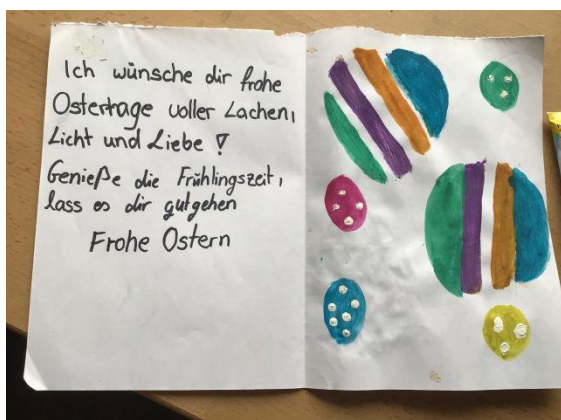 Ich wünsche dir frohe
Ostertage voller Lachen,
Licht und Liebe !
Genieße die Frühlingszeit,
lass es dir gutgehen
Frohe Ostern